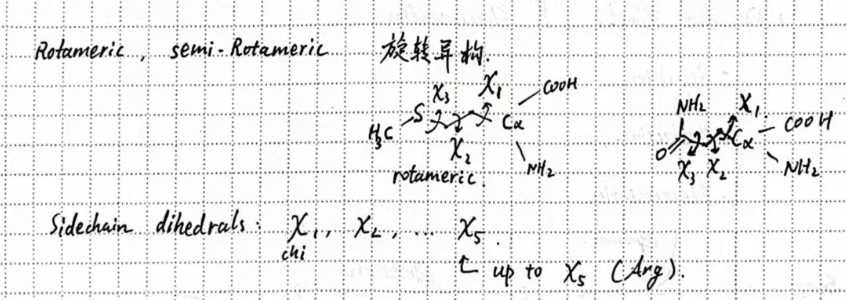 Rotameric, semi-Rotameric 旋转异构.
χ₃ χ₁ COOH
H₃C S Cα
χ₂ NH₂
rotameric.
NH₂ χ₁
O Cα COOH
χ₃ χ₂ NH₂
Sidechain dihedrals: χ₁, χ₂, ... χ₅.
chi
up to χ₅ (Arg).